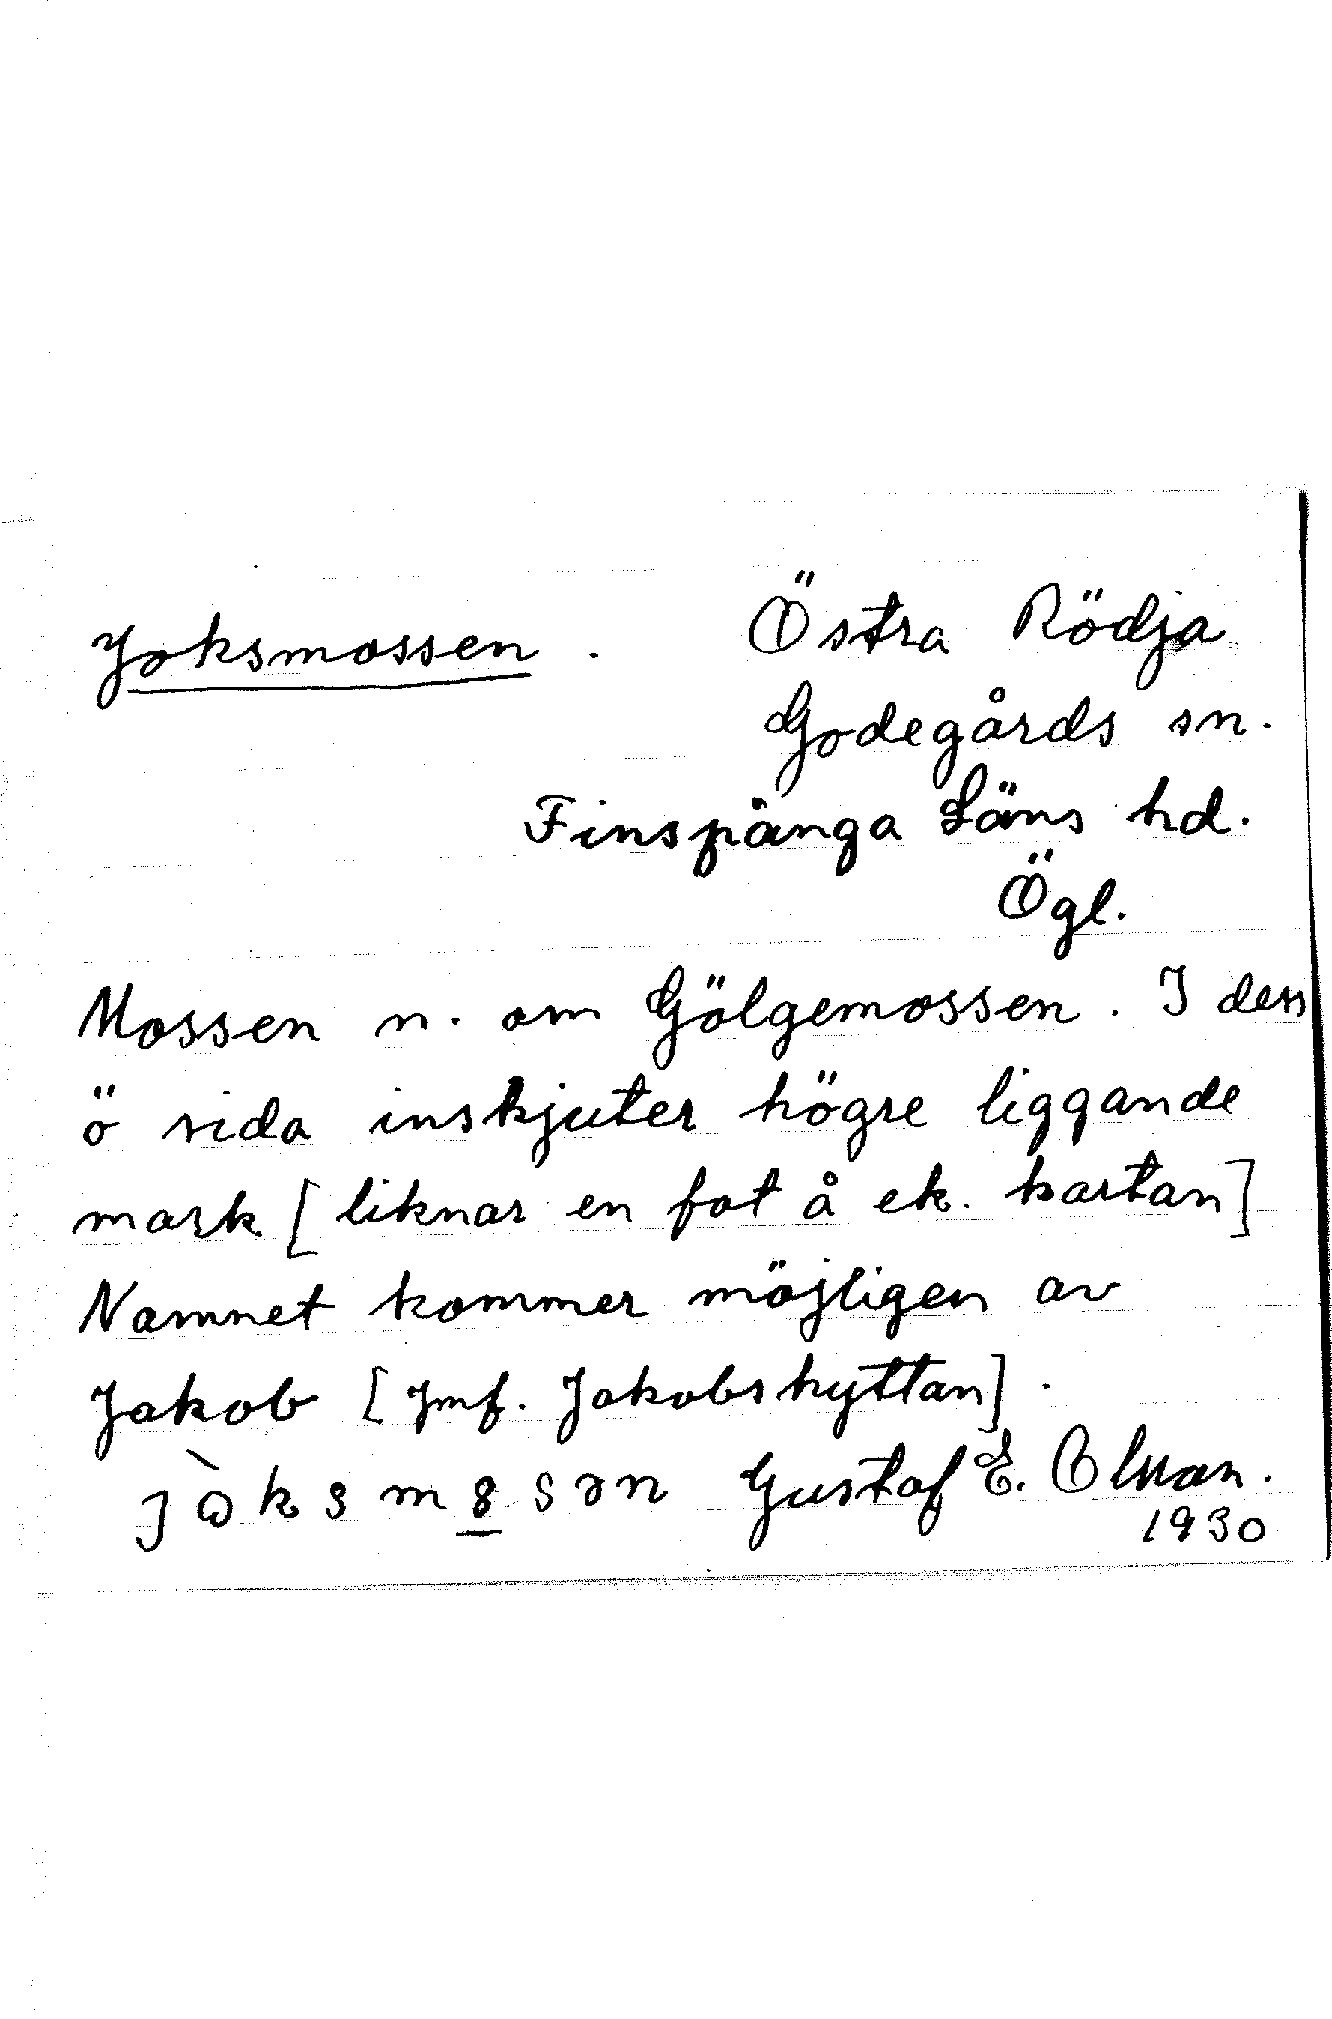 Joksmossen. Östra Rödja
Godegårds sn.
Finspånga Läns hd.
Ögl.
Mossen n. om Gölgemossen. I dess
ö sida inskjuter högre liggande
mark [liknar en fot å ek. kartan]
Namnet kommer möjligen av
Jakob [Jmf. Jakobshyttan].
Gustaf E.
1930